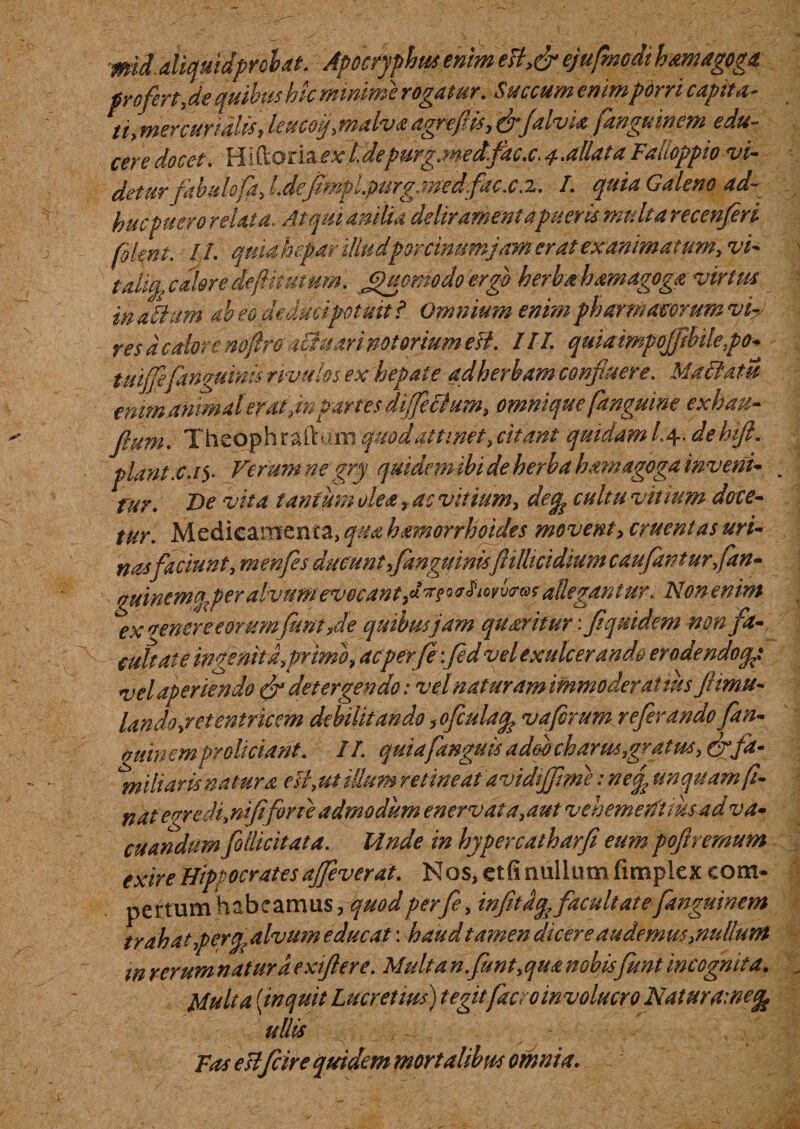 mid aliquid probat. Apocryphus enim est, & ejusmodi hæmagoga
profert, de quibus hîc minimè rogatur. Succum enim porri capita-
ti, mercurialis, leucoij, malvæ agrestis, & salviæ sanguinem edu-
cere docet. Historia ex l. de purg. med. fac. c. 4. allata Falloppio vi-
detur fabulosa, l. de simpl. purg. med. fac. c. 2. I. quia Galeno ad-
huc puero relata. Atqui anilia deliramenta pueris multa recenseri
solent. II. quia hepar illud porcinum jam erat exanimatum, vi-
taliq; calore destitutum. Quomodo ergò herbæ hæmagogæ virtus
in actum ab eo deduci potuit? Omnium enim pharmacorum vi-
res à calore nostro actuari notorium est. III. quia impossibile, po-
tuisse sanguinis rivulos ex hepate ad herbam confluere. Mactatũ
enim animal erat, in partes dissectum, omnique sanguine exhau-
stum. Theophrastum quod attinet, citant quidam l. 4. de hist.
plant. c. 15. Verum ne gry quidem ibi de herba hæmagoga inveni-
tur. De vita tantùm oleæ, ac vitium, deq; cultu vitium doce-
tur. Medicamenta, quæ hæmorrhoides movent, cruentas uri-
nas faciunt, menses ducunt, sanguinis stillicidium causantur, san-
guinemq; per alvum evocant, ἀπροσδιονύσως allegantur. Non enim
ex genere eorum sunt, de quibus jam quæritur: siquidem non fa-
cultate ingenitâ, primò, ac per se: sed vel exulcerando erodendoq;:
vel aperiendo & detergendo: vel naturam immoderatiùs stimu-
lando, retentricem debilitando, osculaq; vasorum reserando san-
guinem proliciant. II. quia sanguis adeò charus, gratus, & fa-
miliaris naturæ est, ut illum retineat avidissimè: neq; unquam si-
nat egredi, nisi fortè admodùm enervata, aut vehementiùs ad va-
cuandum sollicitata. Unde in hypercatharsi eum postremum
exire Hippocrates asseverat. Nos, etsi nullum simplex com-
pertum habeamus, quod per se, insitâq; facultate sanguinem
trahat, perq; alvum educat: haud tamen dicere audemus, nullum
in rerum natura existere. Multa n. sunt, quæ nobis sunt incognita.
Multa (inquit Lucretius) tegit sacro involucro Natura: neq;
ullis
Fas est scire quidem mortalibus omnia.